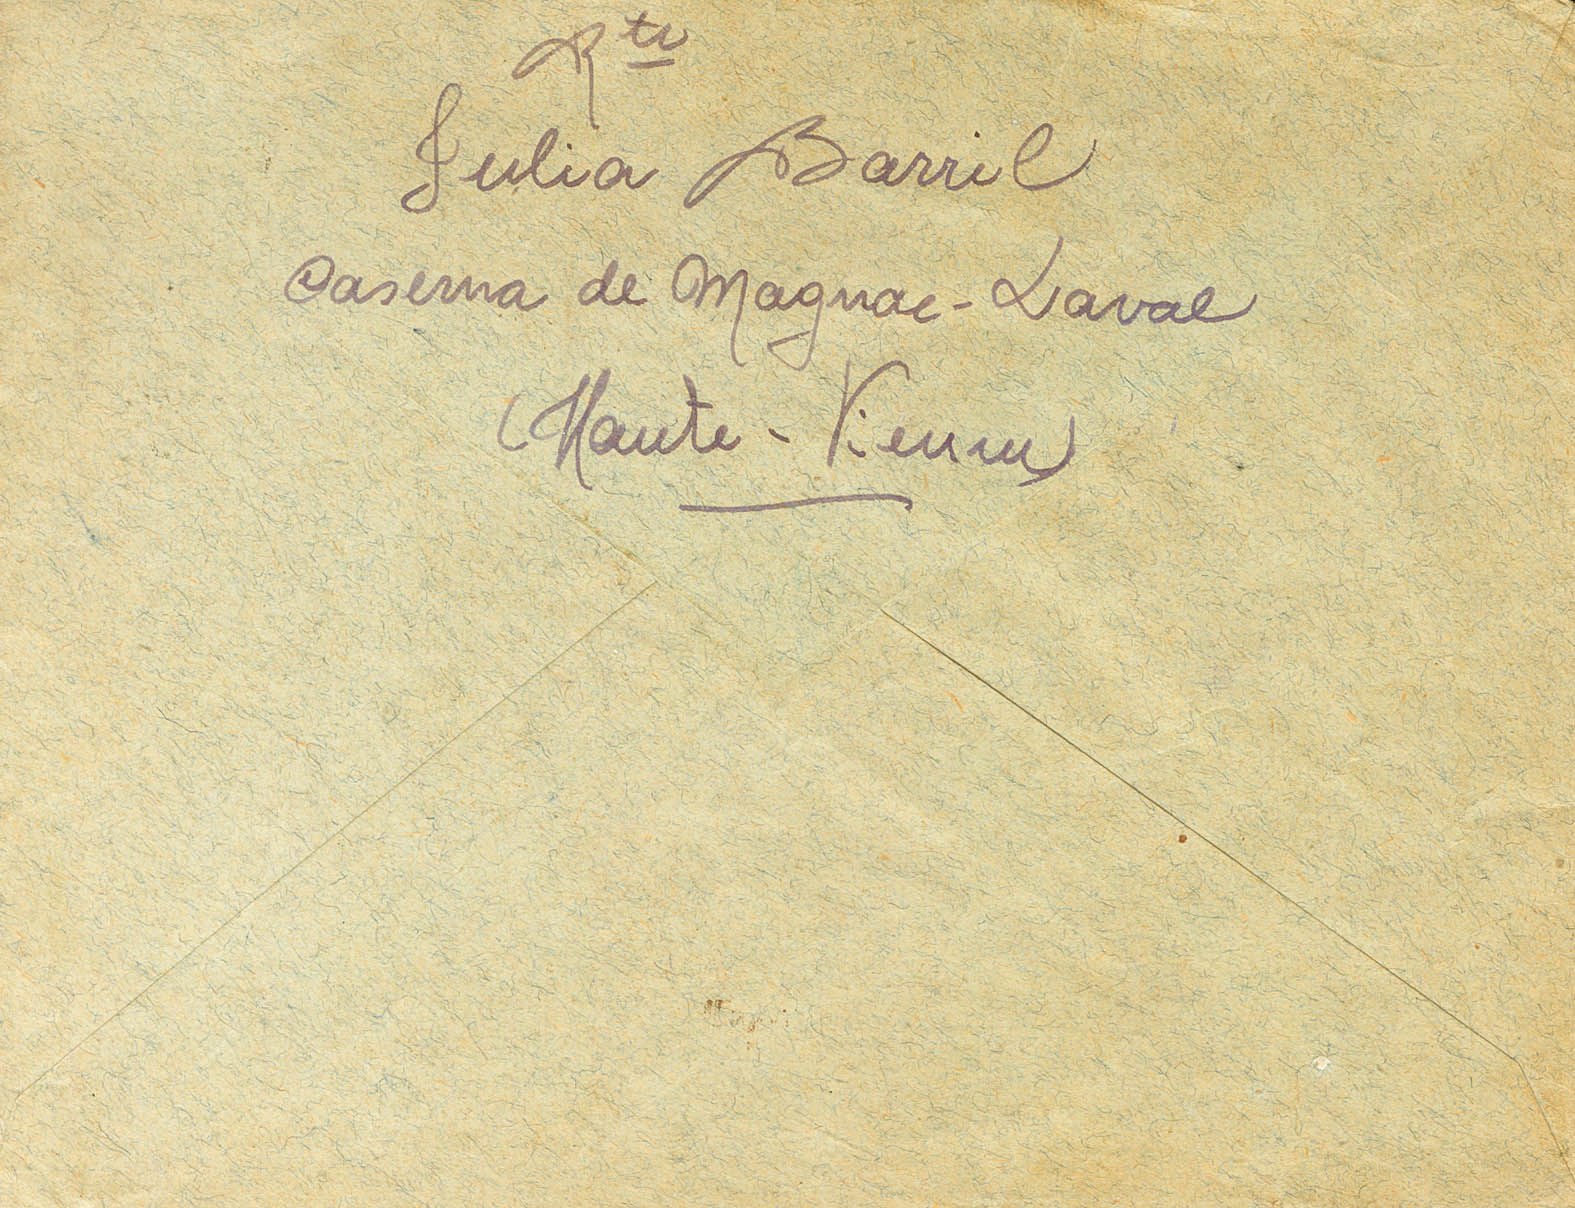 Rte
Julia Barril
Caserna de Magnac-Laval
(Haute-Vienne)